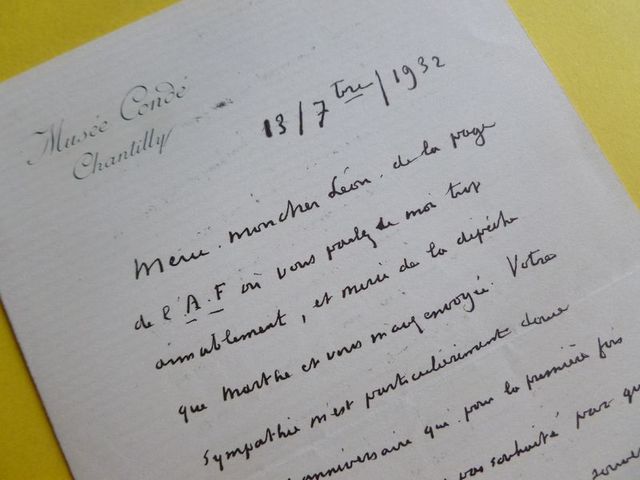 Musée Condé
Chantilly
13/7bre/1932
Merci, mon cher Léon, de la page
de l'A.F où vous parlez de moi trop
aimablement, et merci de la dépêche
que Marthe et vous m'avez envoyée. Votre
sympathie m'est particulièrement douce
anniversaire que pour la première fois
pas souhaité parce que